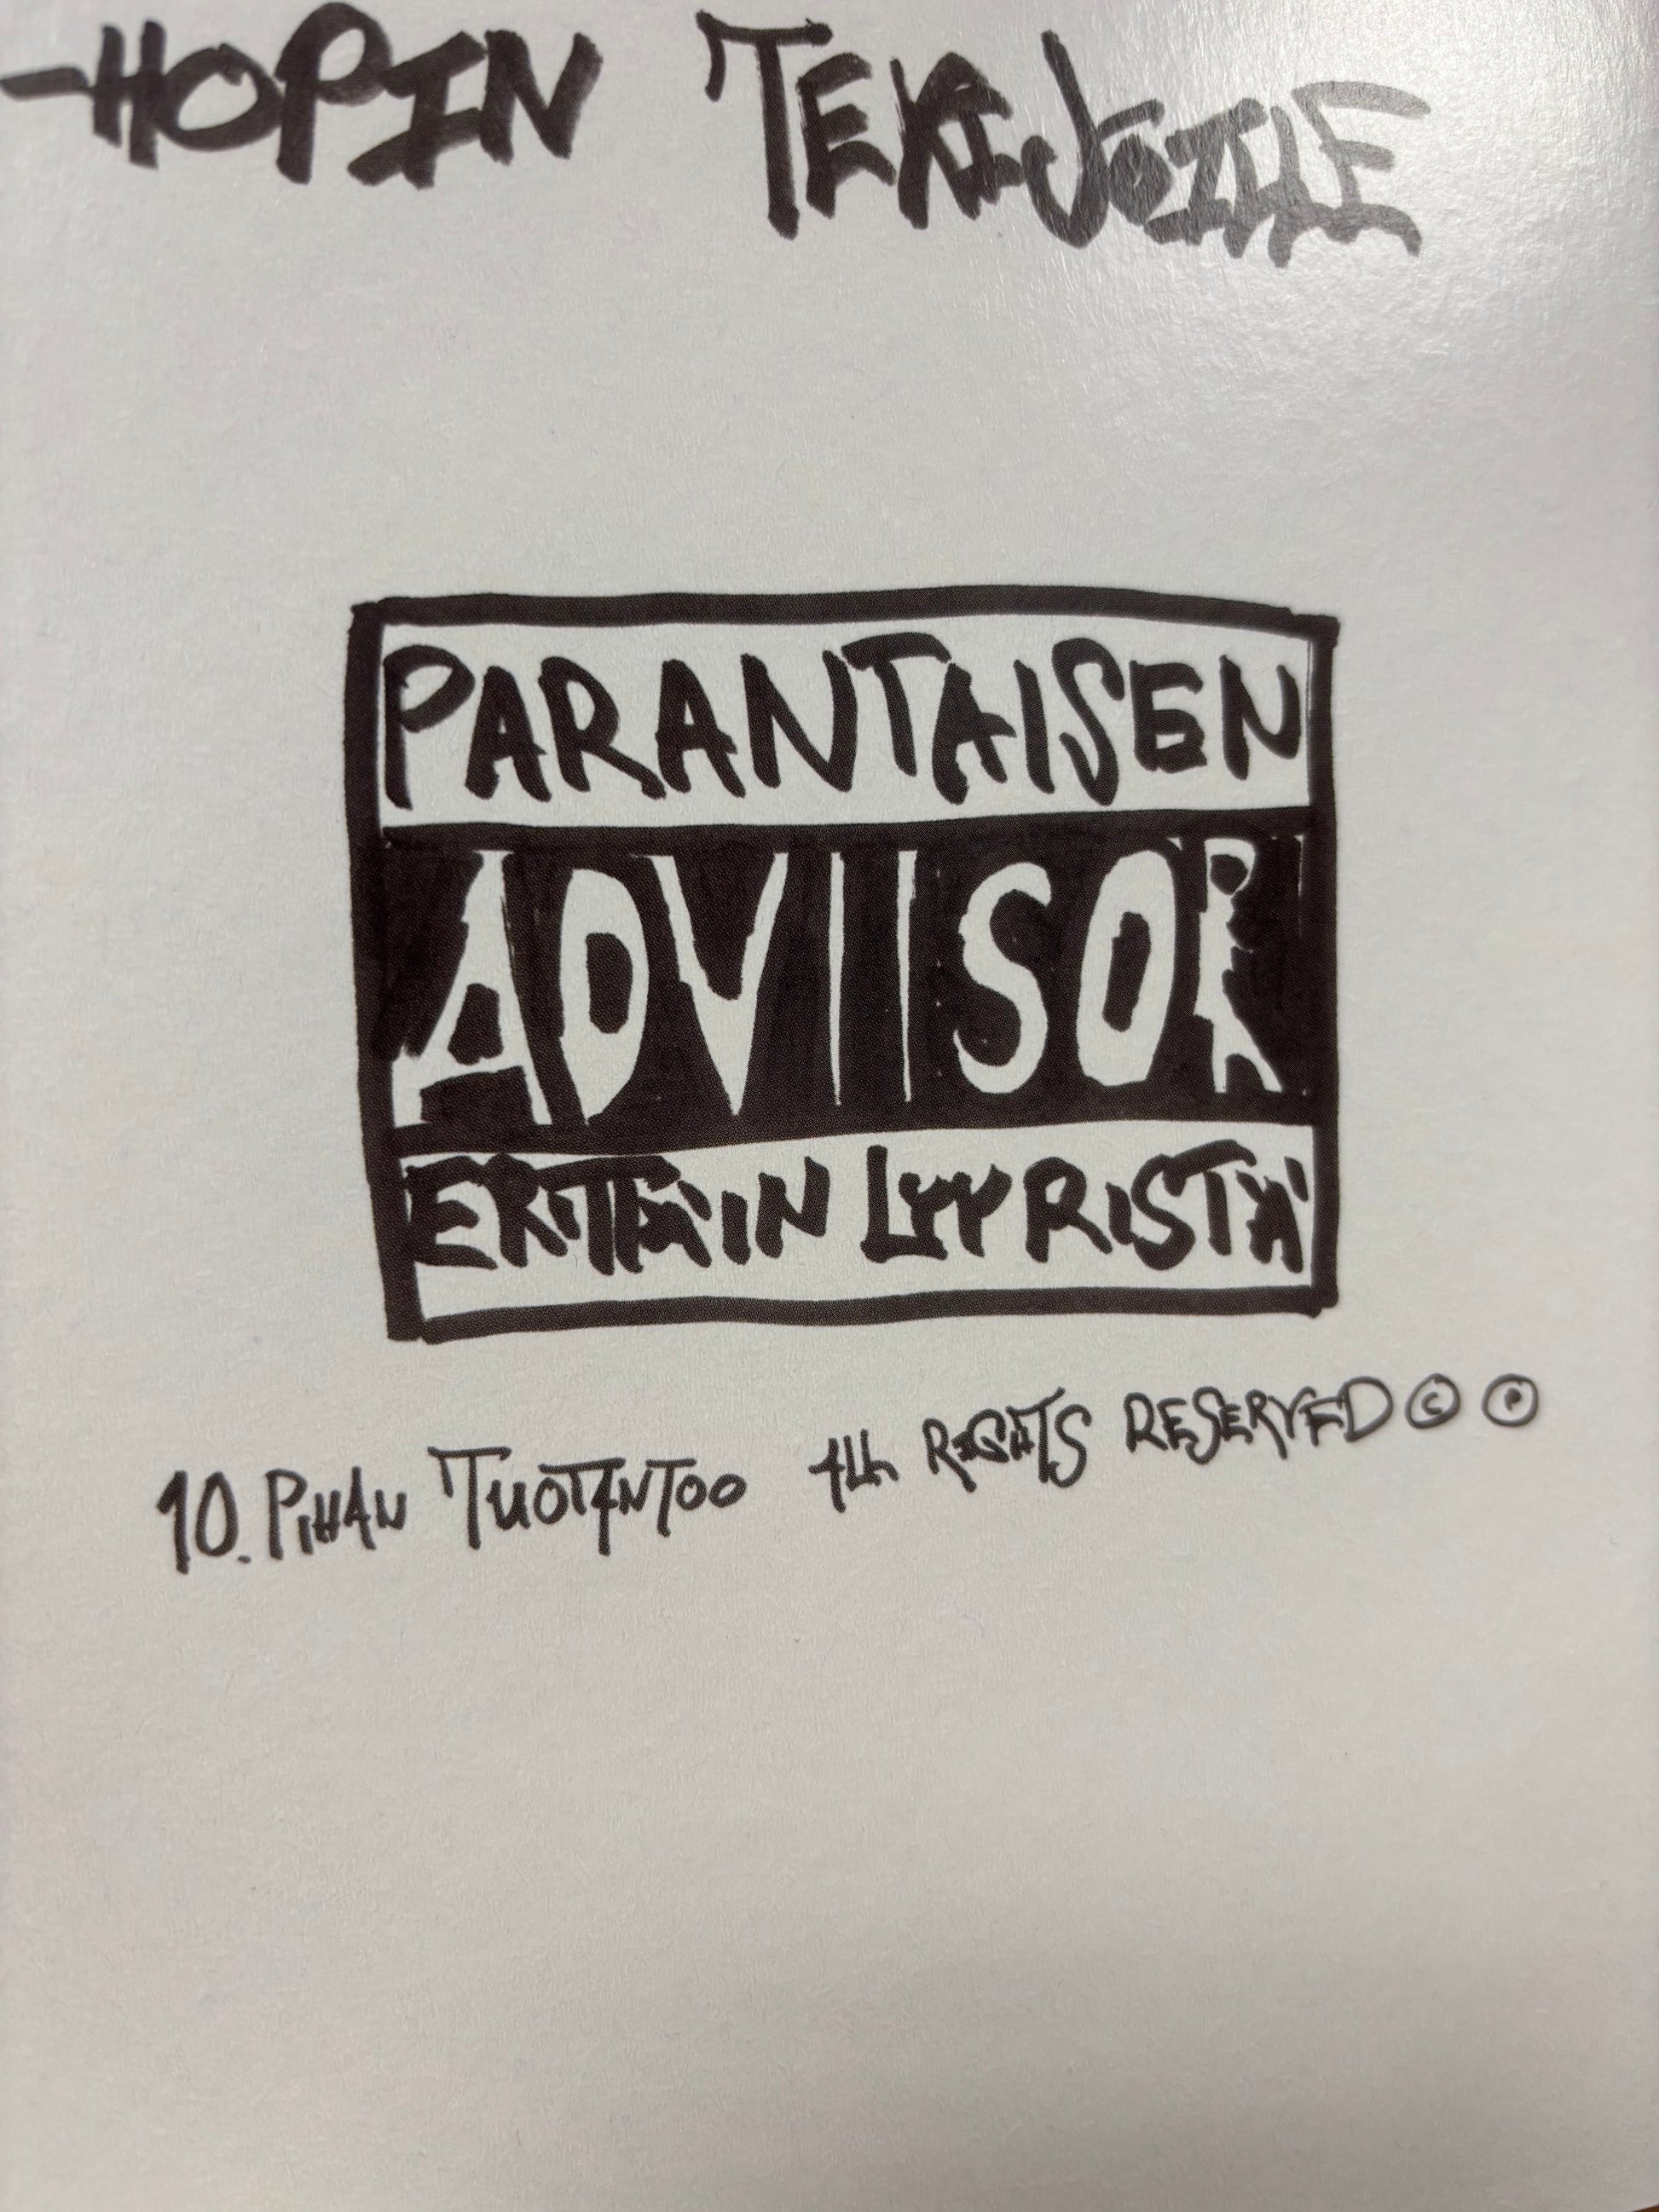 HOPIN TEKIJÖILLE
PARANTAISEN
ADVIISOR
ERITTÄIN LYYRISTÄ
10. PIHAN TUOTANTOO ALL RIGHTS RESERVED © ℗